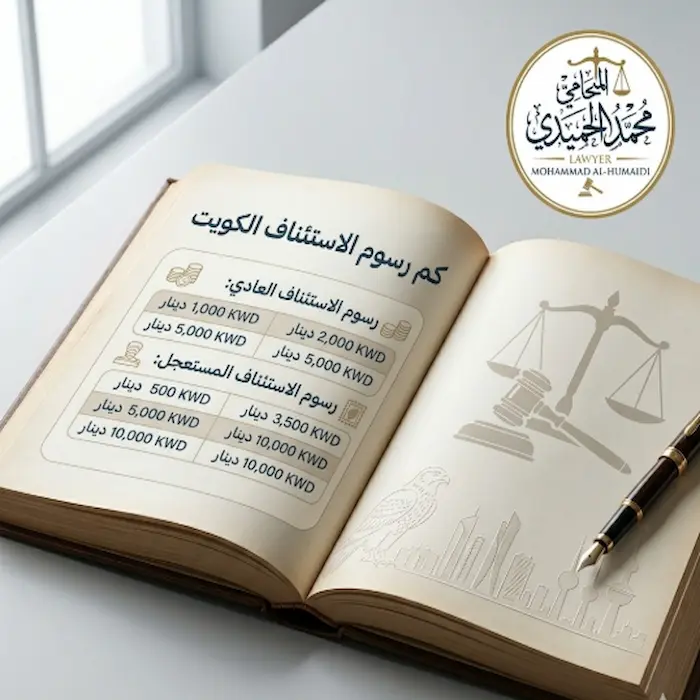 المحامي
محمد الحميدي
LAWYER
MOHAMMAD AL-HUMAIDI
كم رسوم الاستئناف الكويت
رسوم الاستئناف العادي:
2,000 KWD دينار 1,000 KWD دينار
5,000 KWD دينار 5,000 KWD دينار
رسوم الاستئناف المستعجل:
3,500 KWD دينار 500 KWD دينار
10,000 KWD دينار 5,000 KWD دينار
10,000 KWD دينار 10,000 KWD دينار